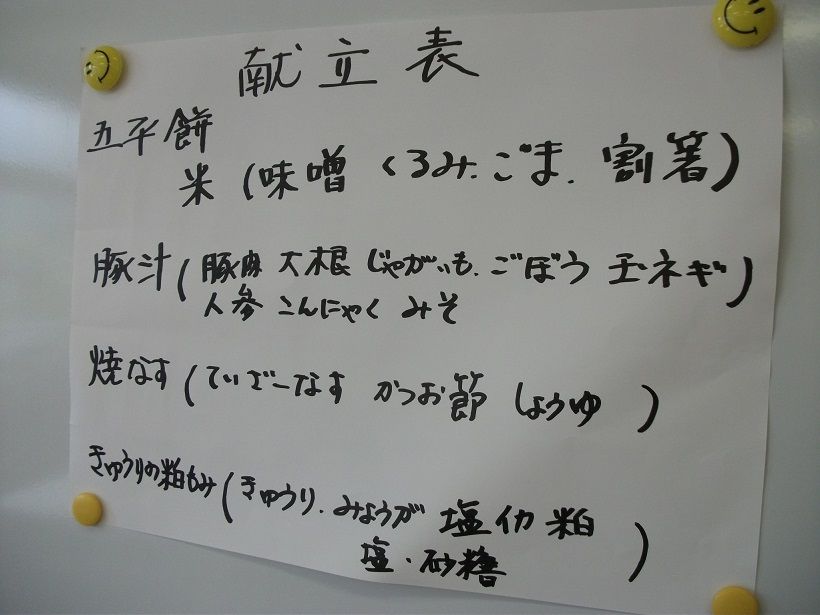 献立表
五平餅
米(味噌 くるみ.ごま.割箸)
豚汁(豚肉 大根 じゃがいも.ごぼう 玉ネギ)
人参 こんにゃく みそ
焼なす(ていざーなす かつお節 しょうゆ )
きゅうりの粕もみ(きゅうり.みょうが 塩イカ 粕
塩・砂糖 )